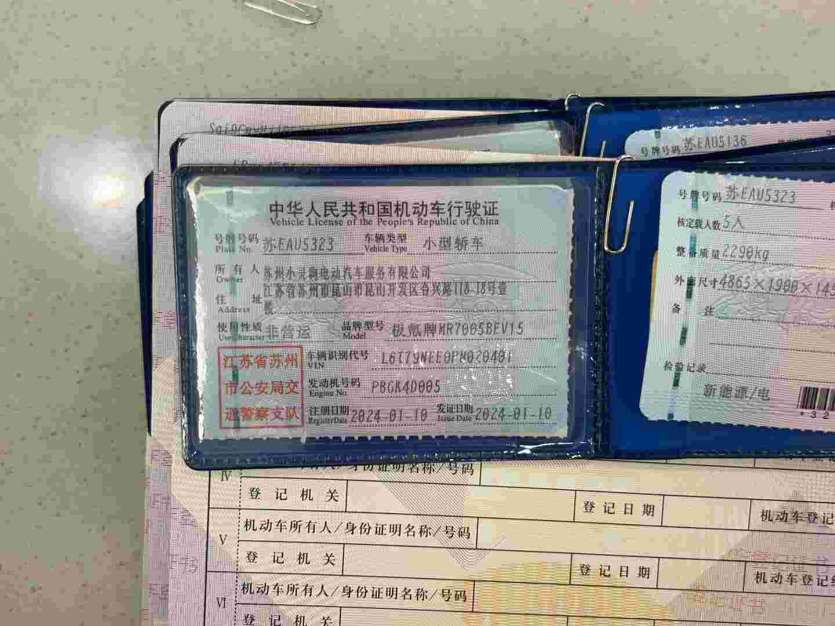 号牌号码 苏EAU5136
中华人民共和国机动车行驶证
Vehicle License of the People's Republic of China
号牌号码 苏EAU5323 车辆类型 小型轿车
Plate No. Vehicle Type
所有人 苏州小灵狗电动汽车服务有限公司
Owner
住址 江苏省苏州市昆山市昆山开发区春兴路118-18号壹
Address
使用性质 非营运 品牌型号 极氪牌MR7005BEV15
Use Character Model
江苏省苏州
市公安局交
通警察支队
车辆识别代号
VIN
发动机号码 PBGK4D005
Engine No.
注册日期 2024-01-10 发证日期 2024-01-10
Register Date Issue Date
号牌号码 苏EAU5323
核定载人数 5人
整备质量 2290kg
外廓尺寸 4865×1900×
备注
检验记录
新能源/电
Ⅳ 机动车所有人/身份证明名称/号码
登记机关 登记日期 机动车登记
Ⅴ 机动车所有人/身份证明名称/号码
登记机关 登记日期 机动车登记
Ⅵ 机动车所有人/身份证明名称/号码
登记机关